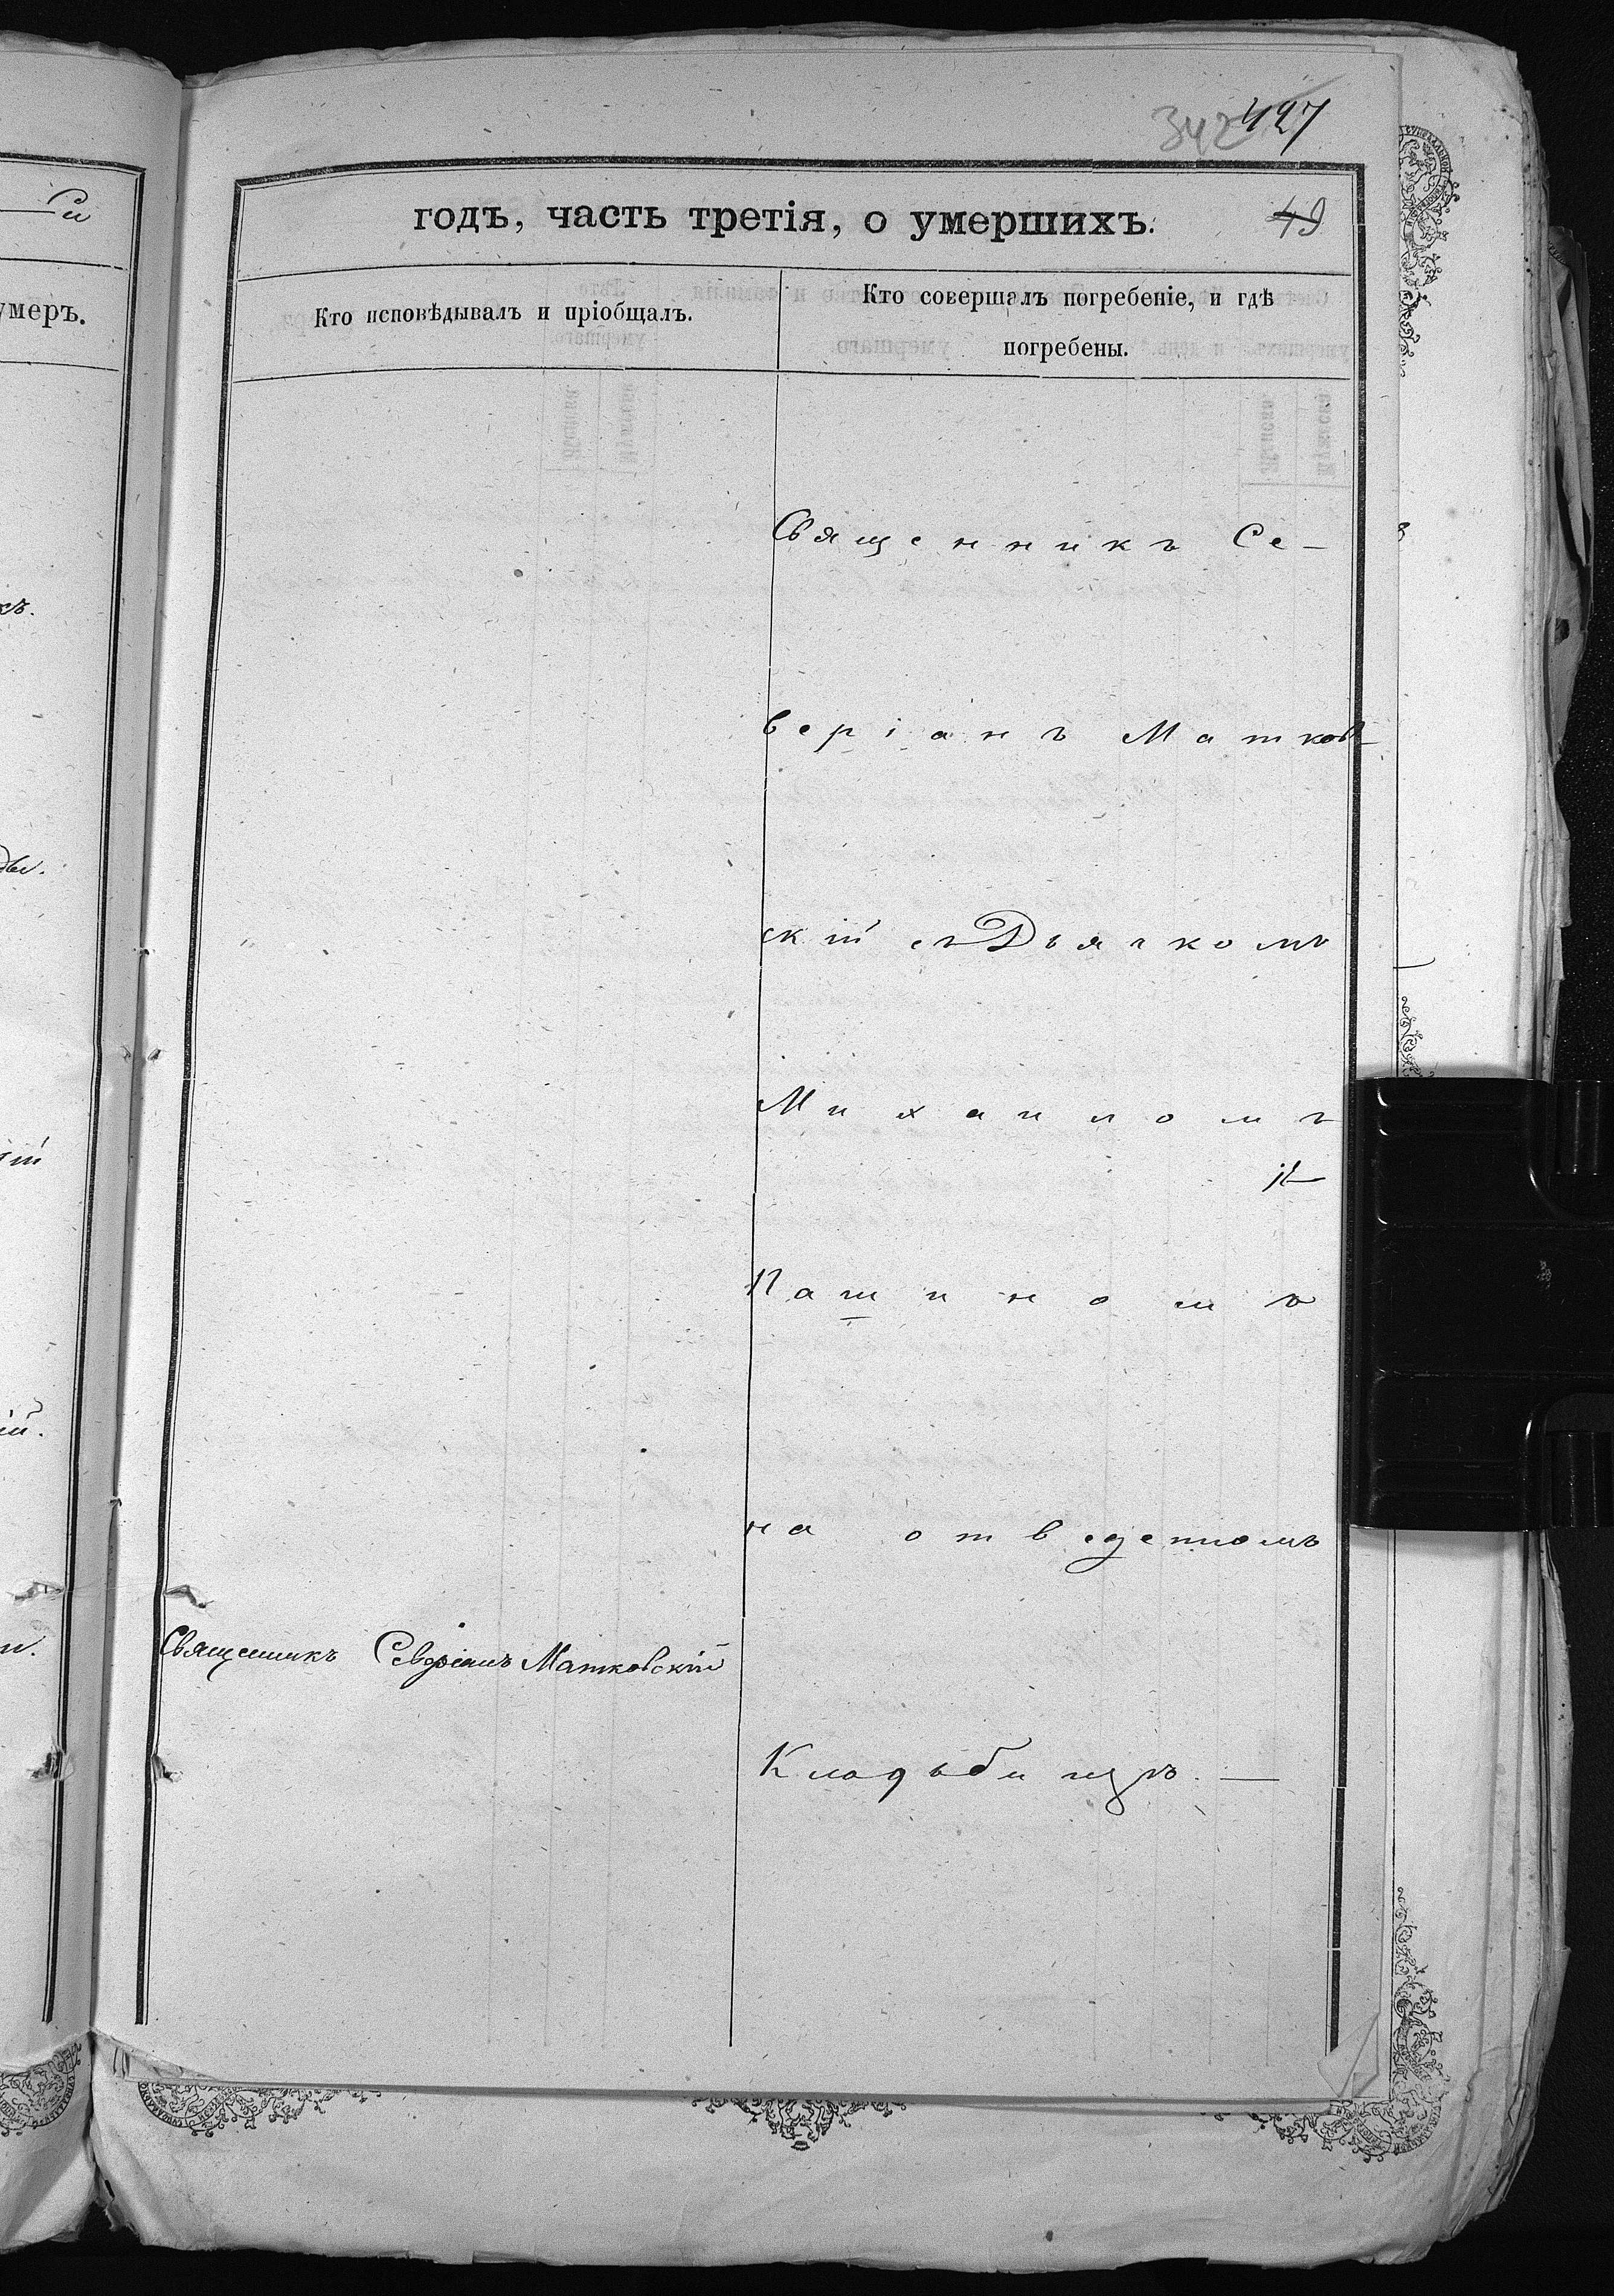 342 427
годъ, часть третія, о умершихъ. 49
Кто исповѣдывалъ и пріобщалъ.
Кто совершалъ погребеніе, и гдѣ
погребены.
Священникъ Се-
веріанъ Матков-
скій съ Дьячкомъ
Михаиломъ
Пашиномъ
на отведенномъ
Священникъ Северіанъ Матковскій
Кладьбищѣ. —
умеръ.